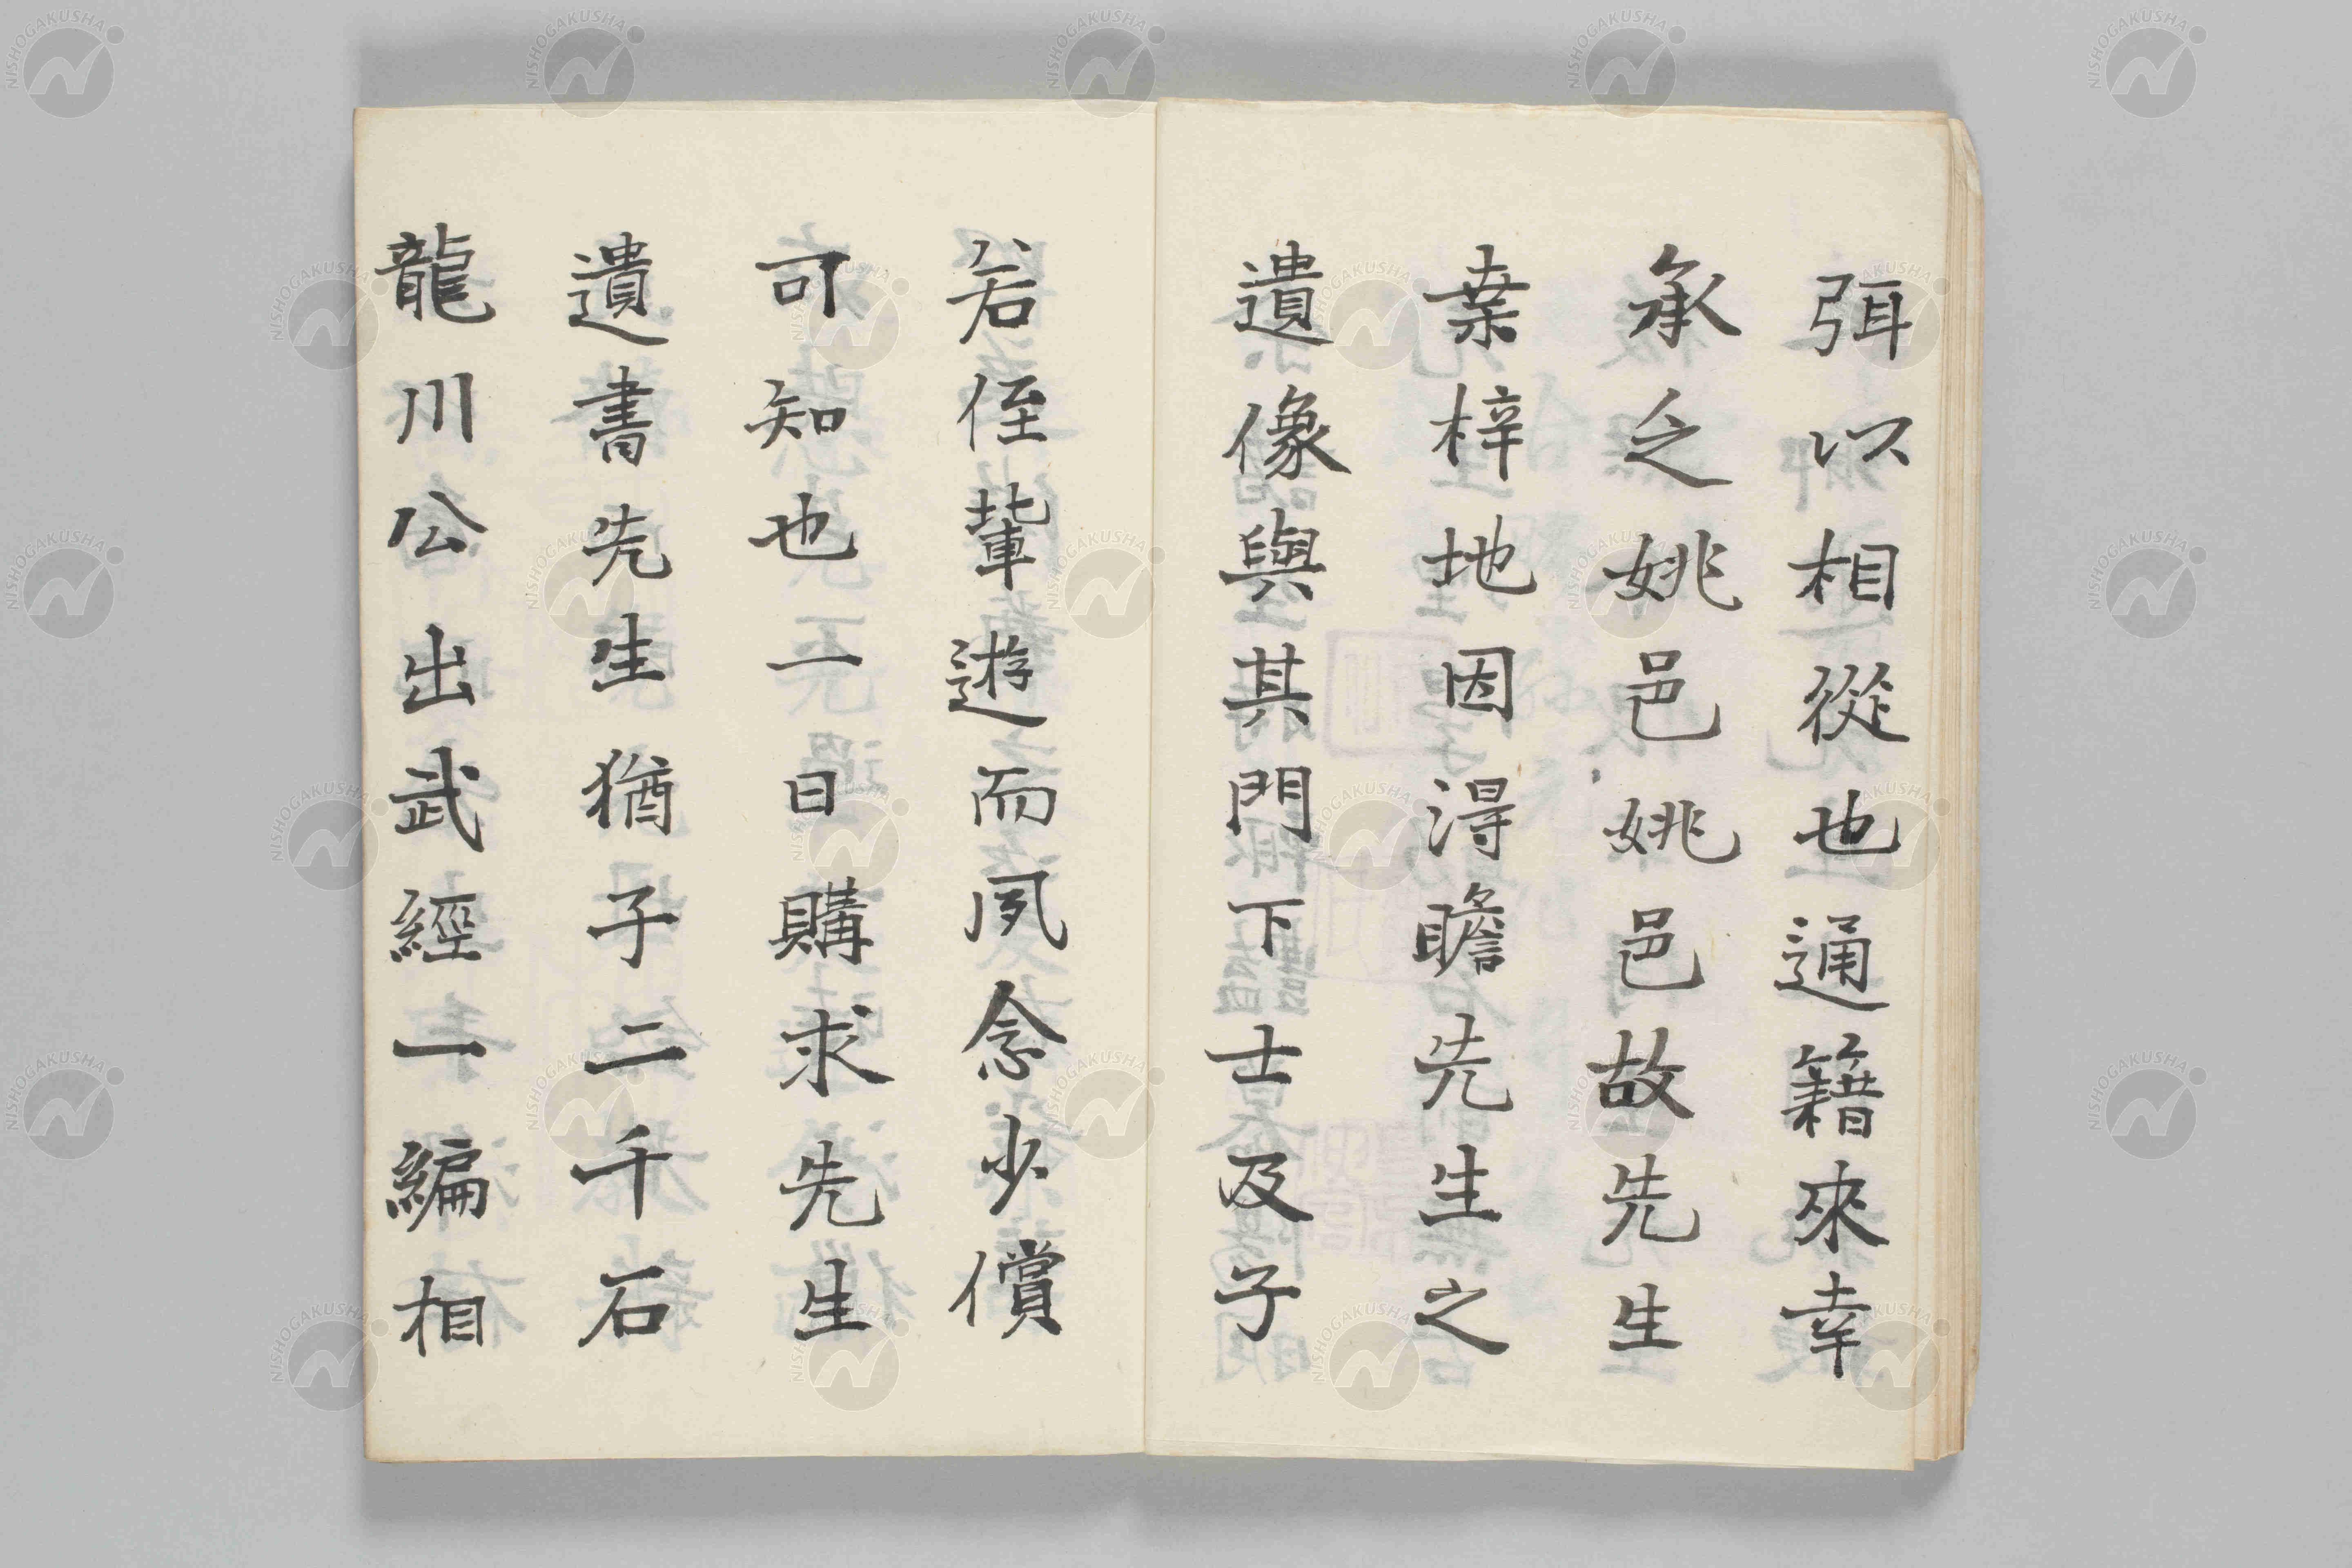 弭以相從也通籍來幸
承之姚邑姚邑故先生
桒梓地因淂瞻先生之
遺像與其門下士及子
若侄軰遊而夙念少償
可知也一日購求先生
遺書先生猶子二千石
龍川公出武經一編相